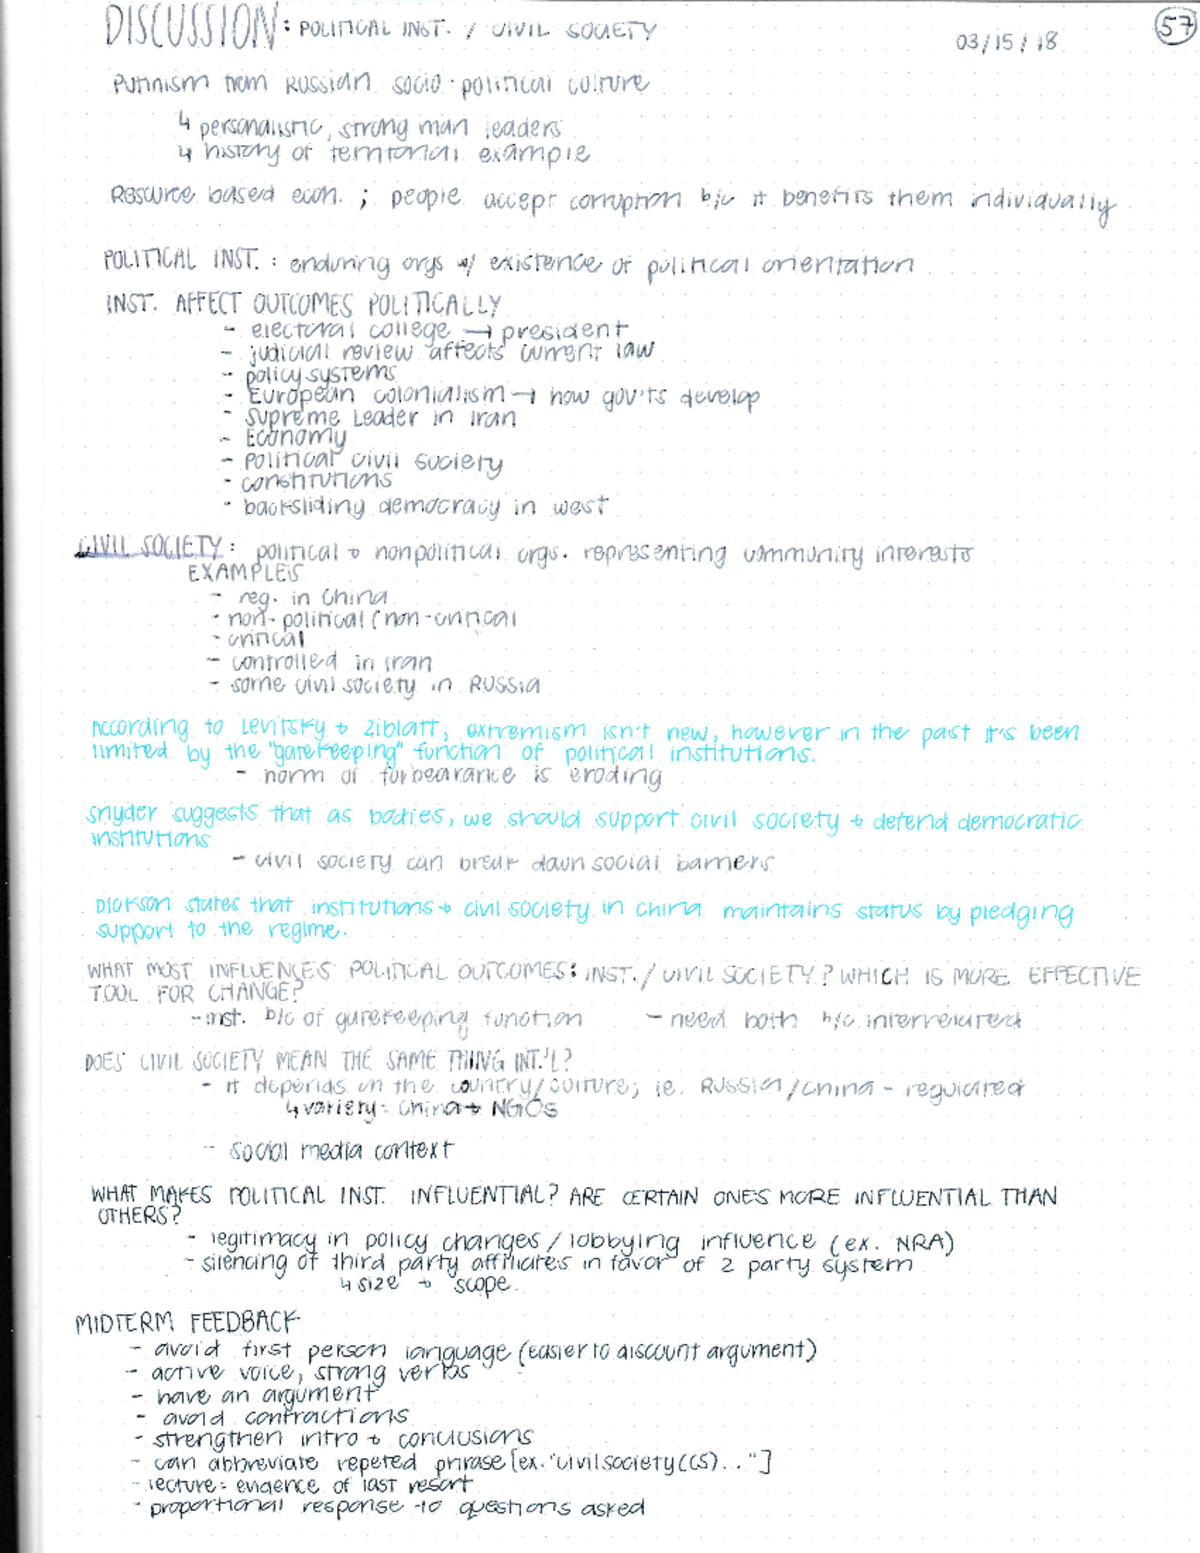 DISCUSSION: POLITICAL INST. / CIVIL SOCIETY
03/15/18
57
Putinism from RUSSIAN socio-political culture
↳ personalistic, strong man leaders
↳ history of territorial example
Resource based econ. ; people accept corruption b/c it benefits them individually
POLITICAL INST. : enduring orgs w/ existence of political orientation
INST. AFFECT OUTCOMES POLITICALLY
- electoral college → president
- judicial review affects current law
- policy systems
- European colonialism → how gov'ts develop
- Supreme Leader in Iran
- Economy
- Political civil society
- constitutions
- backsliding democracy in west
CIVIL SOCIETY: political + nonpolitical orgs. representing community interests
EXAMPLES
- reg. in China
- non-political (non-critical
- critical
- controlled in Iran
- some civil society in RUSSIA
According to Levitsky + Ziblatt, extremism isn't new, however in the past it's been
limited by the "gatekeeping" function of political institutions.
- norm of forbearance is eroding
Snyder suggests that as bodies, we should support civil society + defend democratic
institutions
- civil society can break down social barriers
Dickson states that institutions + civil society in China maintains status by pledging
support to the regime.
WHAT MOST INFLUENCES POLITICAL OUTCOMES: INST. / CIVIL SOCIETY? WHICH IS MORE EFFECTIVE
TOOL FOR CHANGE?
- inst. b/c of gatekeeping function - need both b/c interrelated
DOES CIVIL SOCIETY MEAN THE SAME THING INT'L?
- it depends on the country/culture; ie. RUSSIA/China - regulated
↳ variety: China + NGOs
- social media context
WHAT MAKES POLITICAL INST. INFLUENTIAL? ARE CERTAIN ONES MORE INFLUENTIAL THAN
OTHERS?
- legitimacy in policy changes / lobbying influence (ex. NRA)
- silencing of third party affiliates in favor of 2 party system
↳ size + scope
MIDTERM FEEDBACK
- avoid first person language (easier to discount argument)
- active voice, strong verbs
- have an argument
- avoid contractions
- strengthen intro + conclusions
- can abbreviate repeted phrase [ex. "civil society (CS)..."]
- lecture: evidence of last resort
- proportional response to questions asked